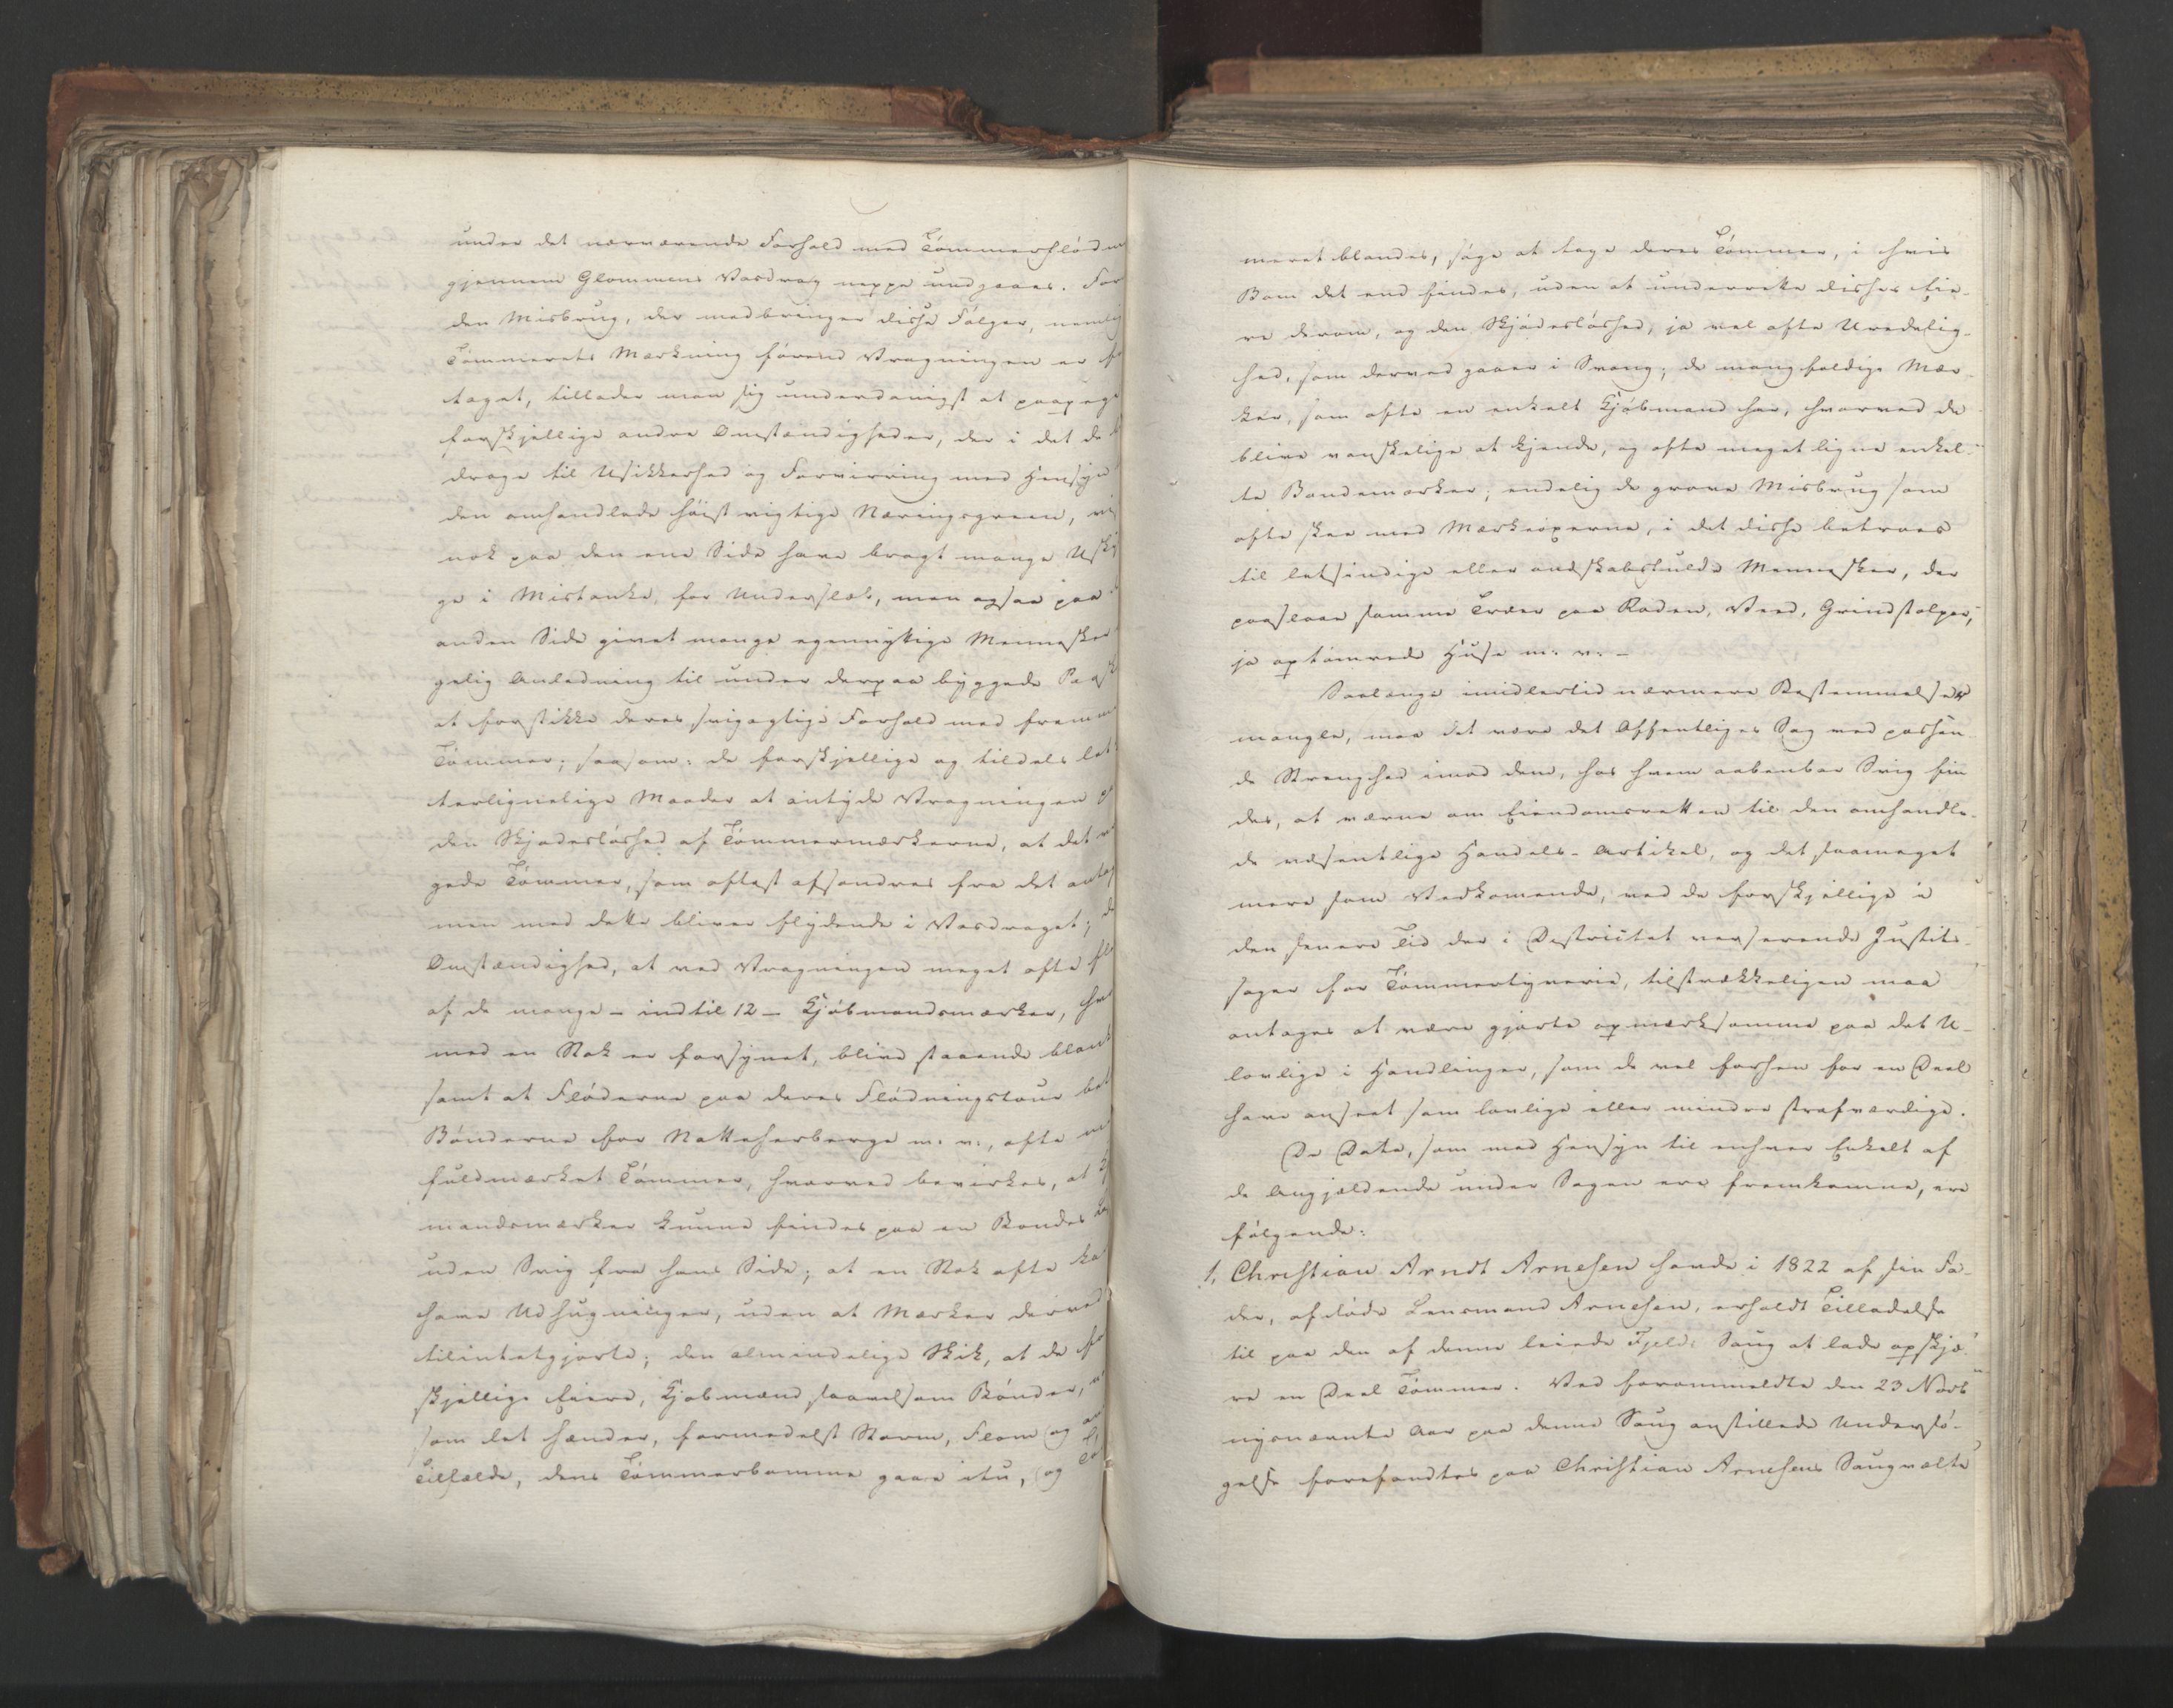 under det nærværende Forhold med Tømmerflødn
gjennem Glommens Vasdrag neppe undgaaes. For
den Misbrug, der medbringer disse Følger, nemlig
Tømmerets Mærkning førend Vragningen er fo
taget, tillader man sig underdanigst at paapege
forskjellige andre Omstændigheder, der i det de b
drage til Usikkerhed og Forvirring med Hensyn
den omhandlede høist vigtige Næringsgreen, vis
nok paa den ene Side have bragt mange Usky
ge i Mistanke for Underslæb, men ogsaa paa
anden Side givet mange egennyttige Mennesker
gelig Anledning til under derpaa byggede Paask
at forstikke deres svigagtige Forhold med fremm
Tømmer; saasom: de forskjellige og tildels let
terlignelige Maader at antyde Vragningen p
den Skjødesløshed af Tømmermærkerne, at det v
gede Tømmer, som oftest afsondres fra det antag
men med dette bliver flydende i Vasdraget; de
Omstændighed, at ved Vragningen meget ofte fl
af de mange - indtil 12 - Kjøbmandsmærker, hvo
med en Stok er forsynet, blive staaende blank
samt at Fløderne paa deres Flødningstour bet
Bønderne for Natteherberge m: v:, ofte me
fuldmærket Tømmer, hvorved bevirkes, at Kj
mandsmærker kunne findes paa en Bondes
uden Svig fra hans Side; at en Stok ofte ka
have Udhugninger, uden at Mærker derved
tilintetgjorte; den almindelige Skik, at de for
skjellige Eiere, Kjøbmænd saavelsom Bønder,
som det hænder, formedelst Storm, Flom og an
Tilfælde, dens Tømmerbomme gaae itu, og Tø
meret blandes, søge at tage deres Tømmer, i hvis
Bom det end findes, uden at underrette disses Eie-
re derom, og den Skjødesløshed, ja vel ofte Uredelig-
hed, som derved gaaer i Svang; de mangfoldige Mær-
ker, som ofte en enkelt Kjøbmand har, hvorved de
blive vanskelige at kjende, og ofte meget ligne enkel-
te Bondemærker; endelig de grove Misbrug som
ofte skee med Mærkeøxerne, i det disse betroes
til letsindige eller ondskabsfulde Mennesker, der
paaslaae samme Træer paa Roden, Veed, Grindstolper,
ja optømrede Huse m: v: -
Saalænge imidlertid nærmere Bestemmelser
mangle, maa det være det Offentliges Sag med passen-
de Strenghed imod dem, hos hvem aabenbar Svig fin-
des, at værne om Eiendomsretten til den omhandle-
de væsentlige Handels-Artikel, og det saameget
mere som Vedkomende, ved de forskjellige i
den senere Tid der i Districtet verserende Justits-
sager for Tømmertyverie, tilstrækkeligen maa
antages at være gjorte opmærksomme paa det U-
lovlige i Handlinger, som de vel forhen for en Deel
have anseet som lovlige eller mindre strafværdige.
De Data, som med Hensyn til enhver Enkelt af
de Angjældende under Sagen ere fremkomne, ere
følgende:
1, Christian Arndt Arnesen havde i 1822 af sin Fa-
der, afdøde Lensmand Arnesen, erholdt Tilladelse
til paa den af denne leiede Fjeld: Saug at lade opskjæ-
re en Deel Tømmer. Ved forommeldte den 23 Novb
nysnævnte Aar paa denne Saug anstillede Undersø-
gelse forefandtes paa Christian Arnesens Saugvælte